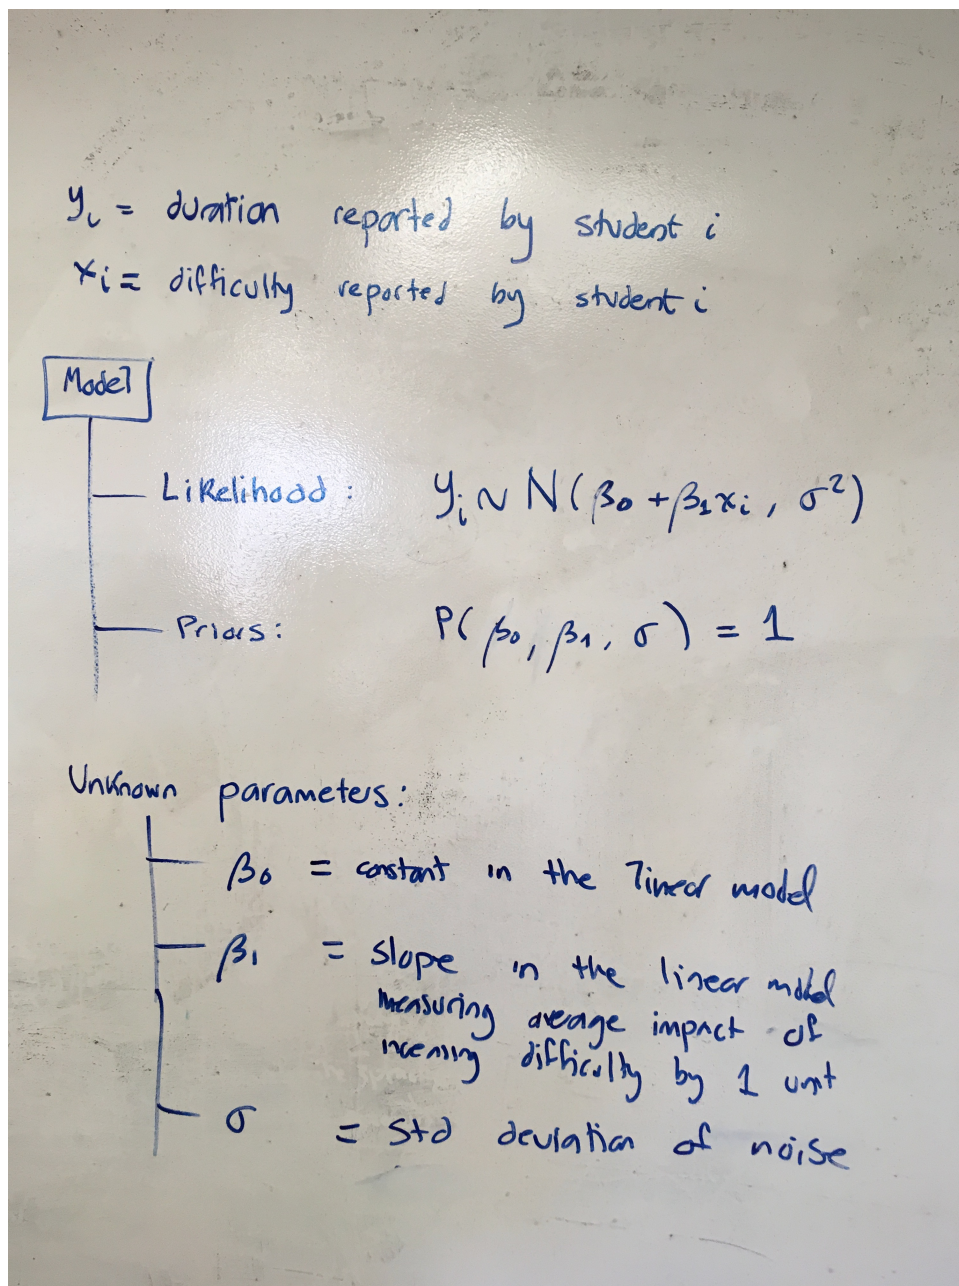 yᵢ = duration reported by student i
xᵢ = difficulty reported by student i
Model
Likelihood : yᵢ ~ N(β₀ + β₁xᵢ , σ²)
Priors: P( β₀, β₁, σ ) = 1
Unknown parameters:
β₀ = constant in the linear model
β₁ = slope in the linear model
measuring average impact of
difficulty by 1 unit
σ = Std deviation of noise